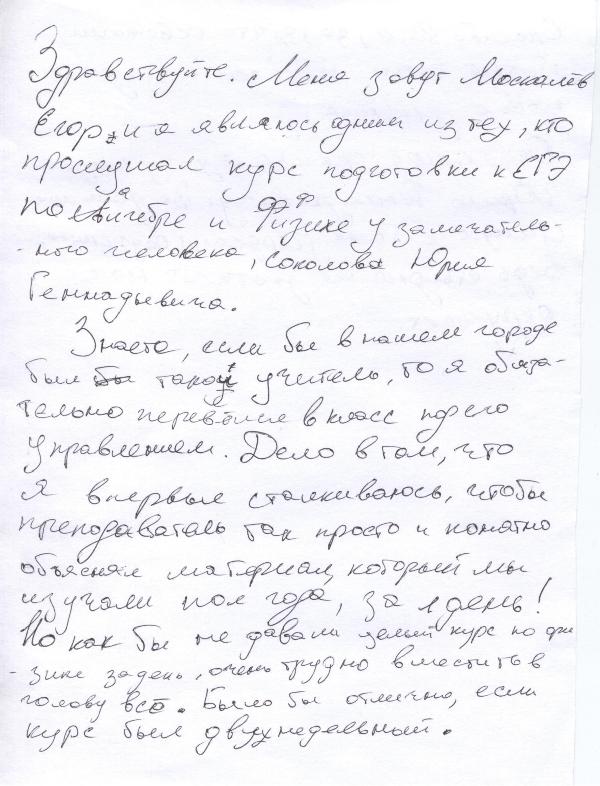 Здравствуйте. Меня зовут Москалёв
Егор, и я являюсь одним из тех, кто
прослушал курс подготовки к ЕГЭ
по алгебре и физике у замечатель-
-ного человека, Соколова Юрия
Геннадьевича.
Знаете, если бы в нашем городе
был такой учитель, то я обяза-
тельно перевёлся в класс под его
управлением. Дело в том, что
я впервые сталкиваюсь, чтобы
преподаватель так просто и понятно
объяснял материал, который мы
изучали пол года, за 1 день!
Но как бы не давали целый курс по фи
-зике за день, очень трудно вместить в
голову всё. Было бы отлично, если
курс был двухнедельный.